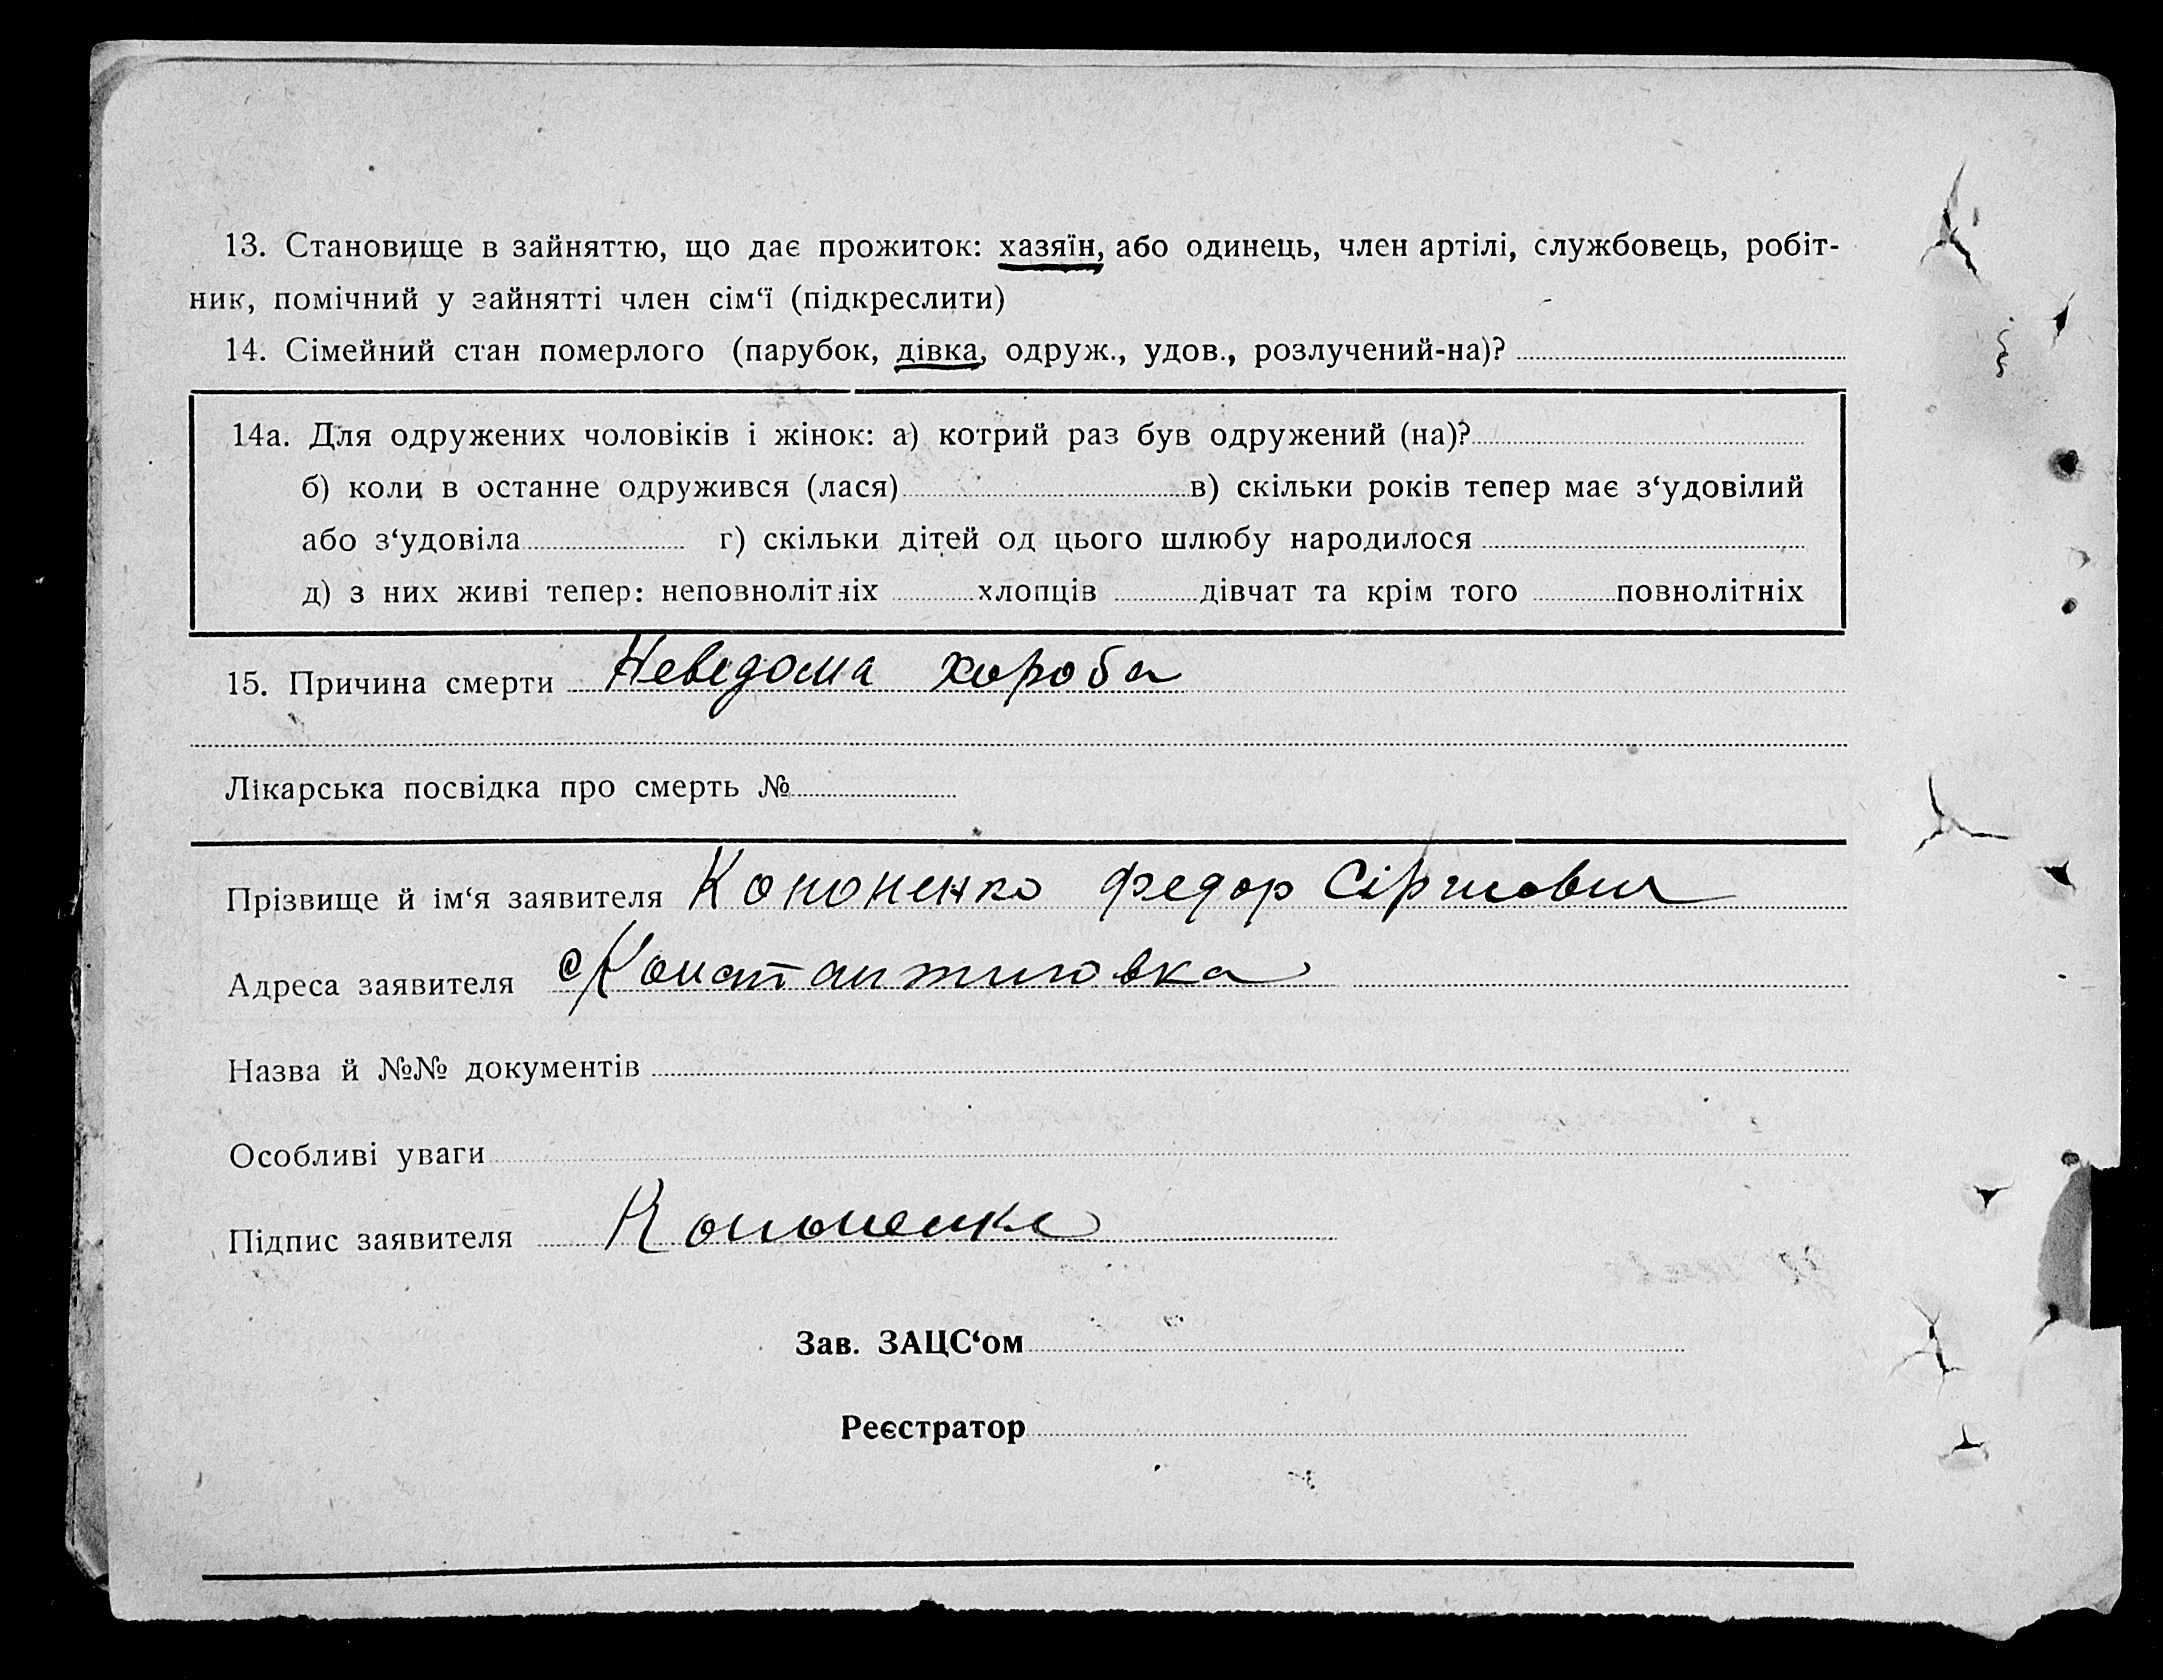 13. Становище в зайняттю, що дає прожиток: хазяїн, або одинець, член артілі, службовець, робіт-
ник, помічний у зайнятті член сім‘ї (підкреслити)
14. Сімейний стан померлого (парубок, дівка, одруж., удов., розлучений-на)?
14а. Для одружених чоловіків і жінок: а) котрий раз був одружений (на)?
б) коли в останне одружився (лася) в) скільки років тепер має з‘удовілий
або з‘удовіла г) скільки дітей од цього шлюбу народилося
д) з них живі тепер: неповнолітніх хлопців дівчат та крім того повнолітніх
15. Причина смерти Неведома хороба
Лікарська посвідка про смерть №
Прізвище й ім‘я заявителя Кононенко Федор
Адреса заявителя с Константиновка
Назва й №№ документів
Особливі уваги
Підпис заявителя Кононенко
Зав. ЗАЦС‘ом
Реєстратор